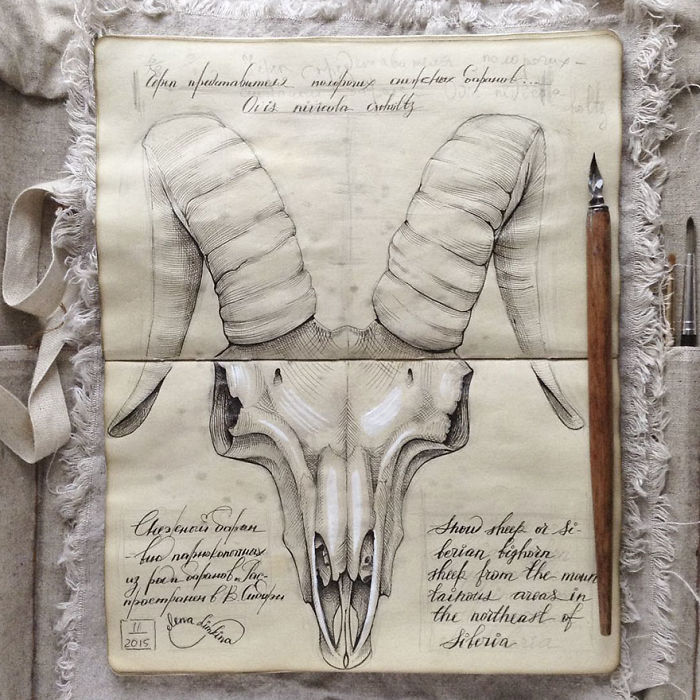 Череп представителя полорогих снежных баранов...
Ovis nivicola esholtz
Снежный баран
вид парнокопытных
из рода баранов. Рас-
пространен в В. Сибири
Elena Limkina
III
2015
Snow sheep or Si-
berian bighorn
sheep from the moun
tainous areas in
the northeast of
Siberia